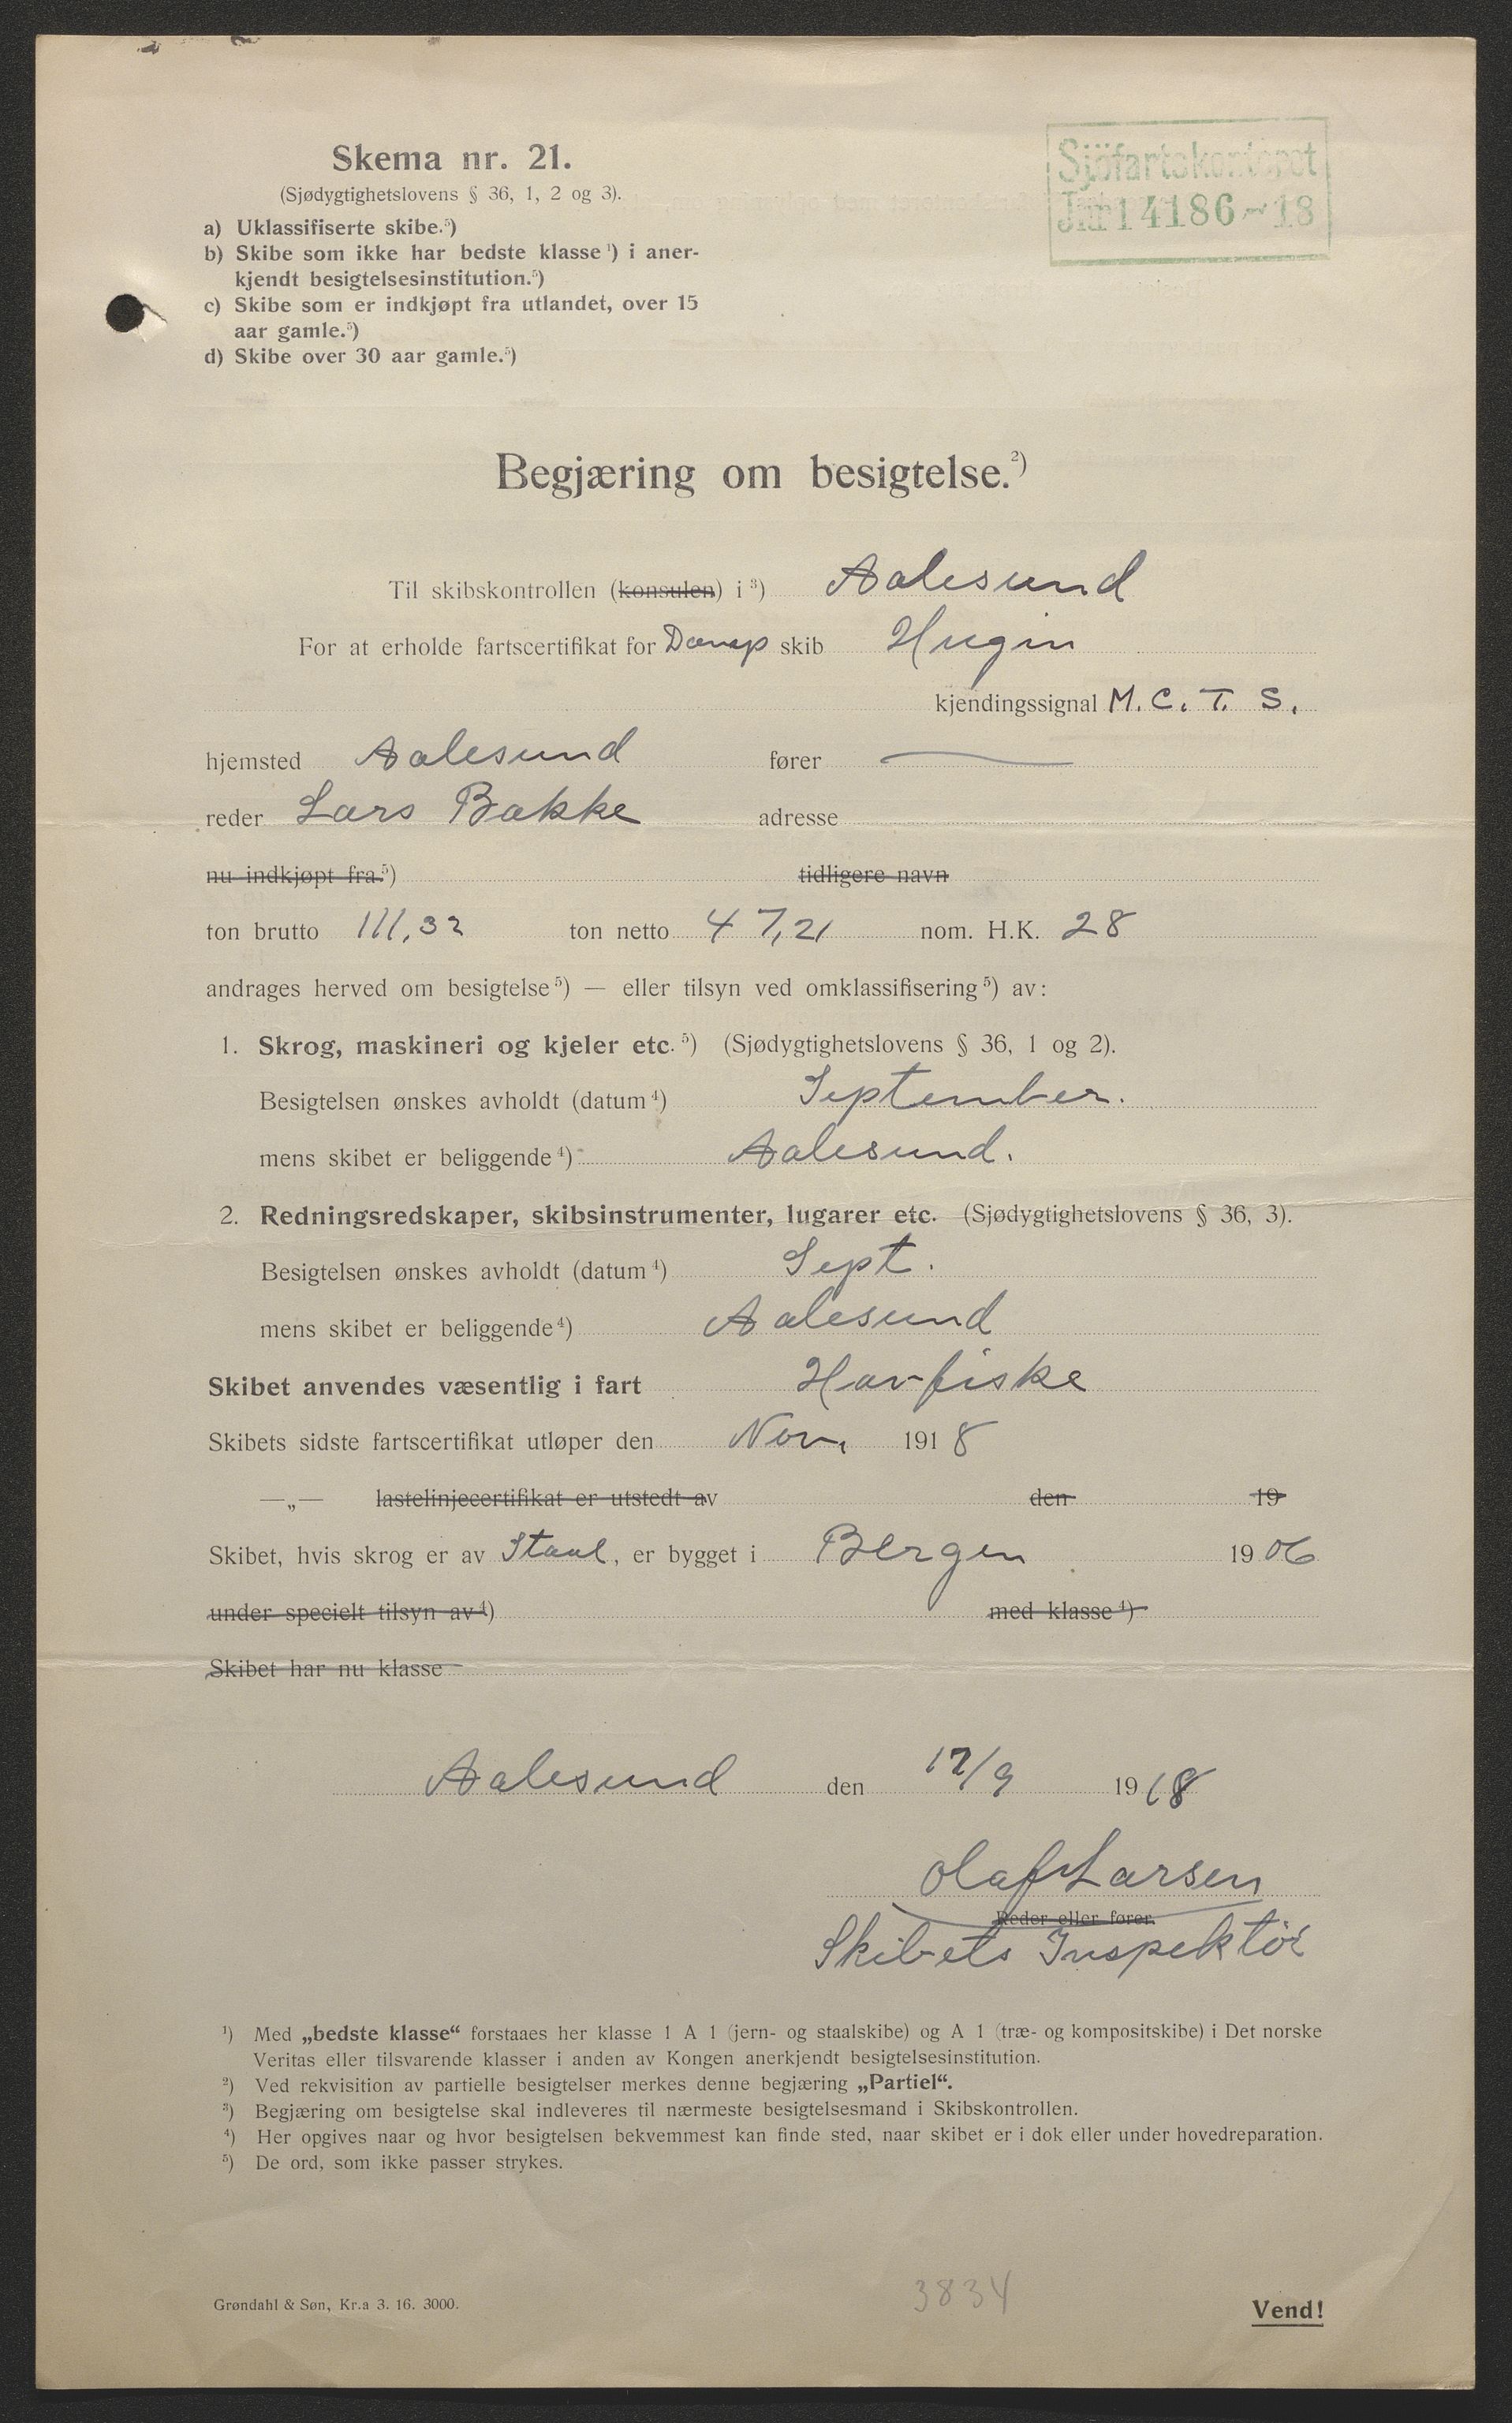 Skema nr. 21.
(Sjødygtighetslovens § 36, 1, 2 og 3).
a) Uklassifiserte skibe.⁵)
b) Skibe som ikke har bedste klasse ¹) i aner-
kjendt besigtelsesinstitution.⁵)
c) Skibe som er indkjøpt fra utlandet, over 15
aar gamle.⁵)
d) Skibe over 30 aar gamle.⁵)
Sjöfartskontoret
Jnr 14186 - 18
Begjæring om besigtelse.²)
Til skibskontrollen (konsulen) i ³) Aalesund
For at erholde fartscertifikat for Damp skib Hugin
kjendingssignal M. C. T. S.
hjemsted Aalesund fører —
reder Lars Bakke adresse
nu indkjøpt fra ⁵) tidligere navn
ton brutto 111,32 ton netto 47,21 nom. H.K. 28
andrages herved om besigtelse ⁵) — eller tilsyn ved omklassifisering ⁵) av:
1. Skrog, maskineri og kjeler etc. ⁵) (Sjødygtighetslovens § 36, 1 og 2).
Besigtelsen ønskes avholdt (datum ⁴) September.
mens skibet er beliggende ⁴) Aalesund.
2. Redningsredskaper, skibsinstrumenter, lugarer etc. (Sjødygtighetslovens § 36, 3).
Besigtelsen ønskes avholdt (datum ⁴) Sept.
mens skibet er beliggende ⁴) Aalesund
Skibet anvendes væsentlig i fart Havfiske
Skibets sidste fartscertifikat utløper den Nov. 1918
—„— lastelinjecertifikat er utstedt av den 19
Skibet, hvis skrog er av Staal, er bygget i Bergen 1906
under specielt tilsyn av ⁴) med klasse ⁴)
Skibet har nu klasse
Aalesund den 12/9 1918
Olaf Larsen
Reder eller fører.
Skibets Inspektör
¹) Med „bedste klasse“ forstaaes her klasse 1 A 1 (jern- og staalskibe) og A 1 (træ- og kompositskibe) i Det norske
Veritas eller tilsvarende klasser i anden av Kongen anerkjendt besigtelsesinstitution.
²) Ved rekvisition av partielle besigtelser merkes denne begjæring „Partiel“.
³) Begjæring om besigtelse skal indleveres til nærmeste besigtelsesmand i Skibskontrollen.
⁴) Her opgives naar og hvor besigtelsen bekvemmest kan finde sted, naar skibet er i dok eller under hovedreparation.
⁵) De ord, som ikke passer strykes.
3834
Grøndahl & Søn, Kr.a 3. 16. 3000.
Vend!